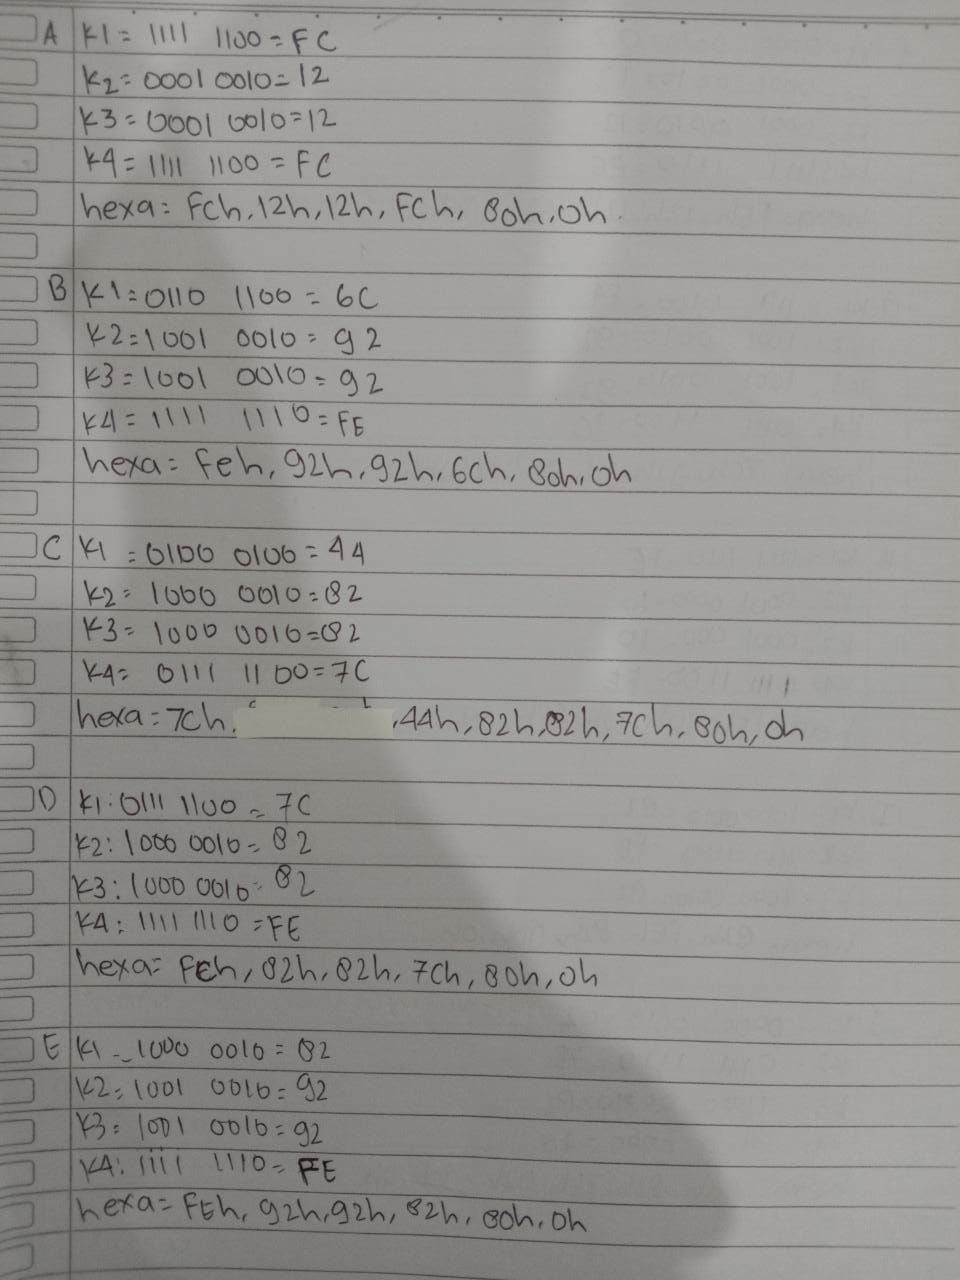 A K1 = 1111 1100 = FC
K2 = 0001 0010 = 12
K3 = 0001 0010 = 12
K4 = 1111 1100 = FC
hexa = FCh, 12h, 12h, FCh, 80h, 0h.
B K1 = 0110 1100 = 6C
K2 = 1001 0010 = 92
K3 = 1001 0010 = 92
K4 = 1111 1110 = FE
hexa = Feh, 92h, 92h, 6Ch, 80h, 0h
C K1 = 0100 0100 = 44
K2 = 1000 0010 = 82
K3 = 1000 0010 = 82
K4 = 0111 1100 = 7C
hexa = 7Ch, , 44h, 82h, 82h, 7Ch, 80h, 0h
D K1: 0111 1100 = 7C
K2: 1000 0010 = 82
K3: 1000 0010 = 82
K4: 1111 1110 = FE
hexa = FEh, 82h, 82h, 7Ch, 80h, 0h
E K1 = 1000 0010 = 82
K2 = 1001 0010 = 92
K3 = 1001 0010 = 92
K4: 1111 1110 = FE
hexa = FEh, 92h, 92h, 82h, 80h, 0h